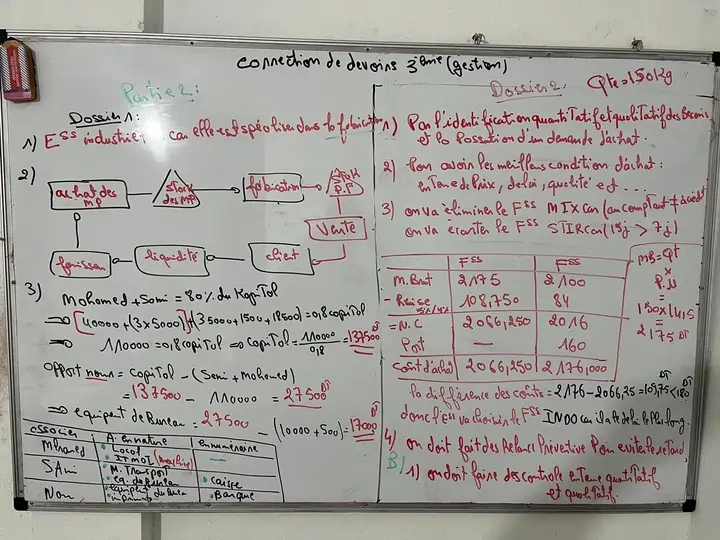 correction de devoirs 3ème (gestion)
Partie 2:
Dossier 1:
1) Ess industriel car elle est spécialisée dans la fabrication
2)
achat des MP
Stock des MP
fabrication
Stock P.F
Vente
client
liquidité
fournisseur
3) Mohamed + Sami = 80% du Kapitol
⇒ [40000 + (3x5000)] + (35000 + 1500 + 18500) = 0,8 capitol
⇒ 110000 = 0,8 capitol ⇒ capitol = 110000/0,8 = 137500 DT
apport nour = capitol - (Sami + Mohamed)
= 137500 - 110000 = 27500 DT
⇒ equipent de Bureau = 27500 - (10000 + 500) = 17000 DT
associer | A. en nature | en numeraire
Mhamed | Local . ITMOI (machine) | —
SAmi | M. Transport . eq. de bureau | . caisse
Nour | . equipent de Bureau . imprimante | . Banque
Dossier 2:
Qte = 150 Kg
1) Par l'identification quantitatif et qualitatif des Besoins
et la Passation d'un demande d'achat.
2) Pour avoir les meilleurs condition d'achat:
en terme de Prix, delai, qualité et ...
3) on va éliminer le Fss MIX car (au comptant ≠ à crédit
on va ecarter le Fss STIR car (15j > 7j)
Fss | Fss
M. Brut | 2175 | 2100
- Remise 5%/4% | 108,750 | 84
= N.C | 2066,250 | 2016
Port | — | 160
Coût d'achat | 2066,250 | 2176,000
MB = Qt
x
P.U
=
150 x 14,5
=
2175 DT
la différence des coûts = 2176 - 2066,25 = 109,75 DT < 180 DT
donc l'Ess va choisir le Fss INOO car il a le delai le Plus long.
4) on doit fait des Relance Préventive Pour eviter le retard
B/
1) on doit faire des controle en terme quantitatif
et qualitatif.